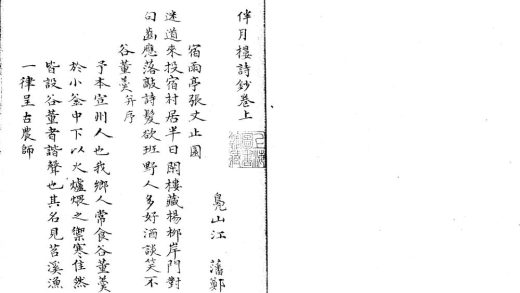 伴月樓詩鈔卷上
鳧山江 藩鄭
宿雨亭張丈止園
迷道來投宿村居半日閒樓藏楊柳岸門對
句齒應落敲詩髮欲班野人多好酒談笑不
谷董羹并序
予本宣州人也我鄉人常食谷董羹
於小釜中下以火爐煨之禦寒佳然
皆設谷董者諧聲也其名見苕溪漁
一律呈古農師